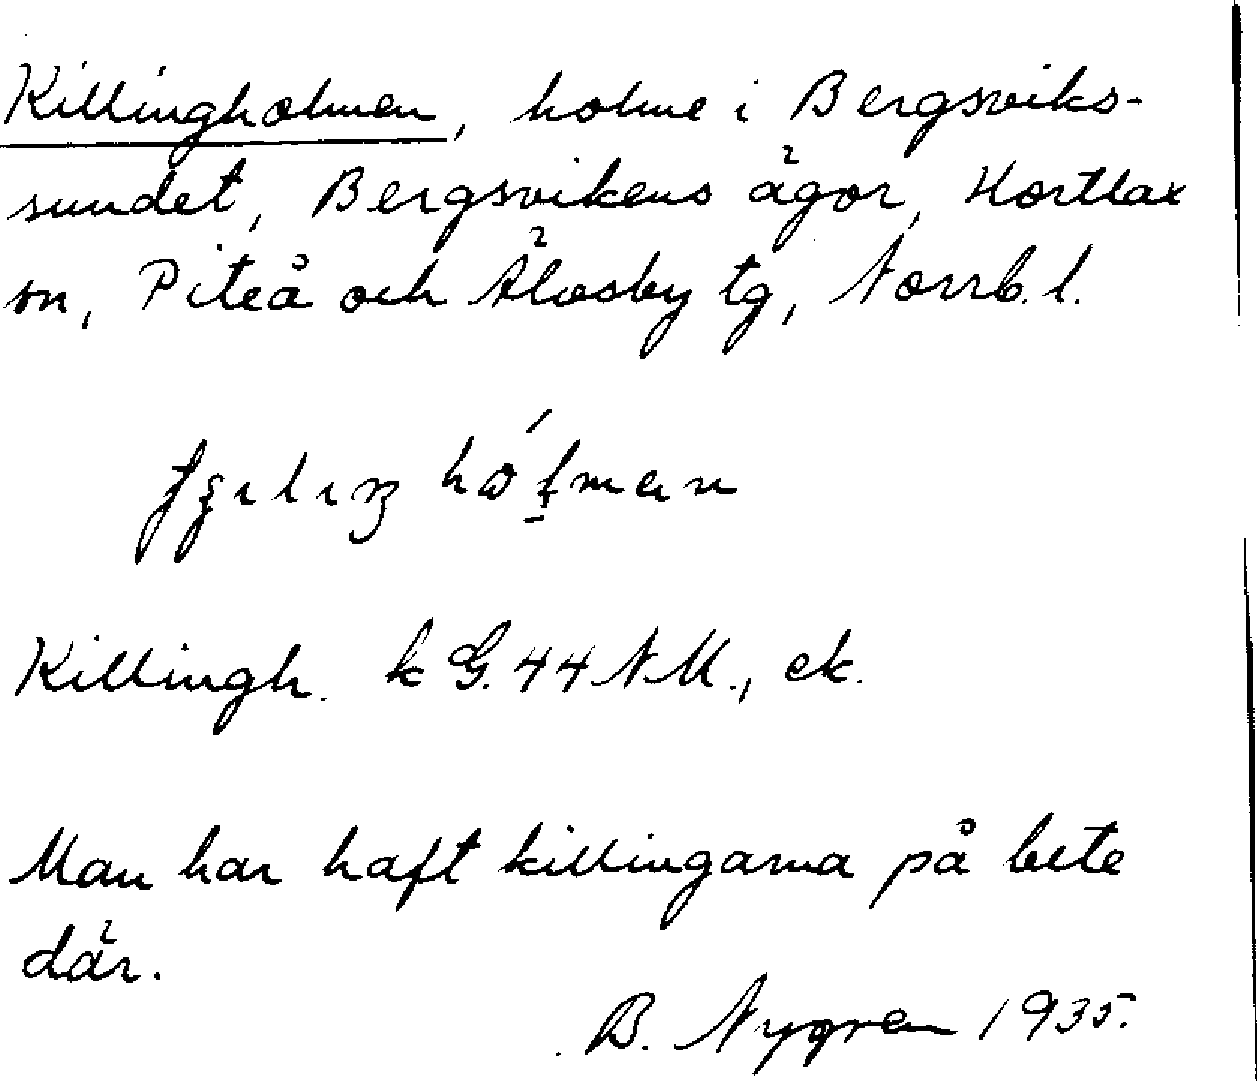 Killingholmen, holme i Bergsviks-
sundet, Bergsvikens ägor, Hortlax
sn, Piteå och Älvsby tg, Norrb. l.
Killingh. k G. 44 NM., ek.
Man har haft killingarna på bete
där.
B. Nygren 1935.